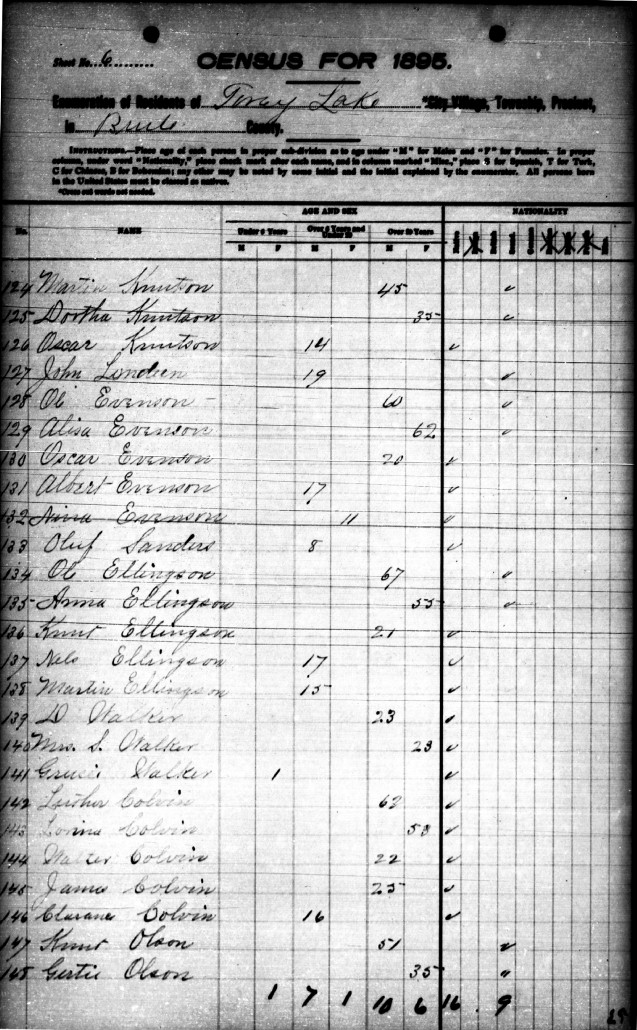 Sheet No. 6
CENSUS FOR 1895.
Enumeration of Residents of Torey Lake *City, Village, Township, Precinct,
in Brule County.
INSTRUCTIONS.—Place age of each person in proper sub-division as to age under "M" for Males and "F" for Females. In proper
column, under word "Nationality," place check mark after each name, and in column marked "Misc," place S for Spanish, T for Turk,
C for Chinese, B for Bohemian; any other may be noted by some initial and the initial explained by the enumerator. All persons born
in the United States must be classed as natives.
*Cross out words not needed.
AGE AND SEX NATIONALITY
No. NAME Under 6 Years Over 6 Years and Under 20 Over 20 Years
M F M F M F
124 Martin Knutson 45 ✓
125 Dortha Knutson 35 ✓
126 Oscar Knutson 14 ✓
127 John Londeen 19 ✓
128 Ol Evenson 60 ✓
129 Alisa Evenson 62 ✓
130 Oscar Evenson 20 ✓
131 Albert Evenson 17 ✓
132 Nina Evenson 11 ✓
133 Oluf Sanders 8 ✓
134 Ol Ellingson 67 ✓
135 Anna Ellingson 55 ✓
136 Knut Ellingson 21 ✓
137 Nels Ellingson 17 ✓
138 Martin Ellingson 15 ✓
139 D Walker 23 ✓
140 Mrs. S. Walker 23 ✓
141 Gracie Walker 1 ✓
142 Luther Colvin 62 ✓
143 Lorina Colvin 58 ✓
144 Walter Colvin 22 ✓
145 James Colvin 25 ✓
146 Clarance Colvin 16 ✓
147 Knut Olson 51 ✓
148 Gertie Olson 35 ✓
1 7 1 10 6 16 9
25